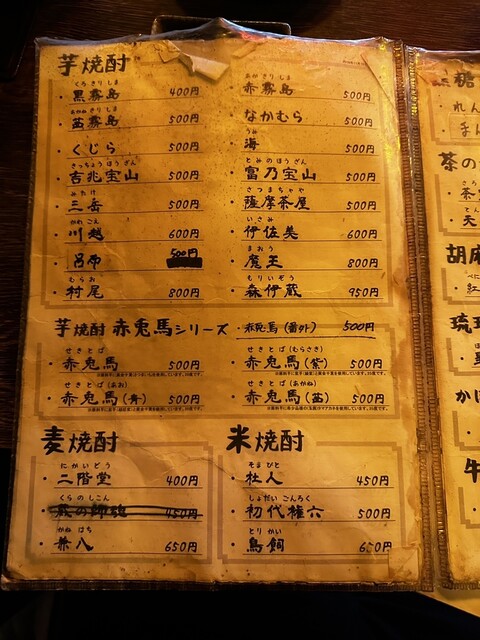 芋焼酎
くろきりしま
黒霧島 400円
あかねきりしま
茜霧島 500円
くじら 500円
きっちょうほうざん
吉兆宝山 500円
みたけ
三岳 500円
かわごえ
川越 600円
500円
むらお
村尾 800円
あかきりしま
赤霧島 500円
なかむら 500円
うみ
海 500円
とみのほうざん
富乃宝山 500円
さつまちゃや
薩摩茶屋 500円
いさみ
伊佐美 600円
まおう
魔王 800円
もりいぞう
森伊蔵 950円
芋焼酎 赤兎馬シリーズ ・赤兎馬(番外) 500円
せきとば
赤兎馬 500円
せきとば(むらさき)
赤兎馬(紫) 500円
せきとば(あお)
赤兎馬(青) 500円
せきとば(あかね)
赤兎馬(茜) 500円
麦焼酎
にかいどう
二階堂 400円
くらのしこん
蔵の師魂 450円
かねはち
兼八 650円
米焼酎
そまびと
杜人 450円
しょだいごんろく
初代権六 500円
とりかい
鳥飼 650円
糖
れん
茶の
天
胡麻
紅
琉球